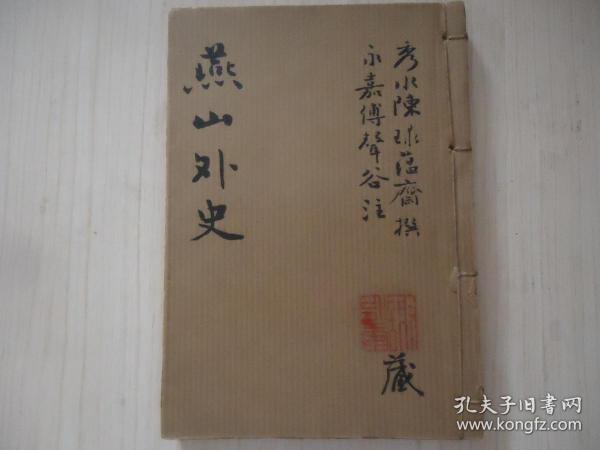 秀水陳球蕴齋撰
永嘉傅聲谷注
燕山外史
藏
孔夫子旧书网
www.kongfz.com